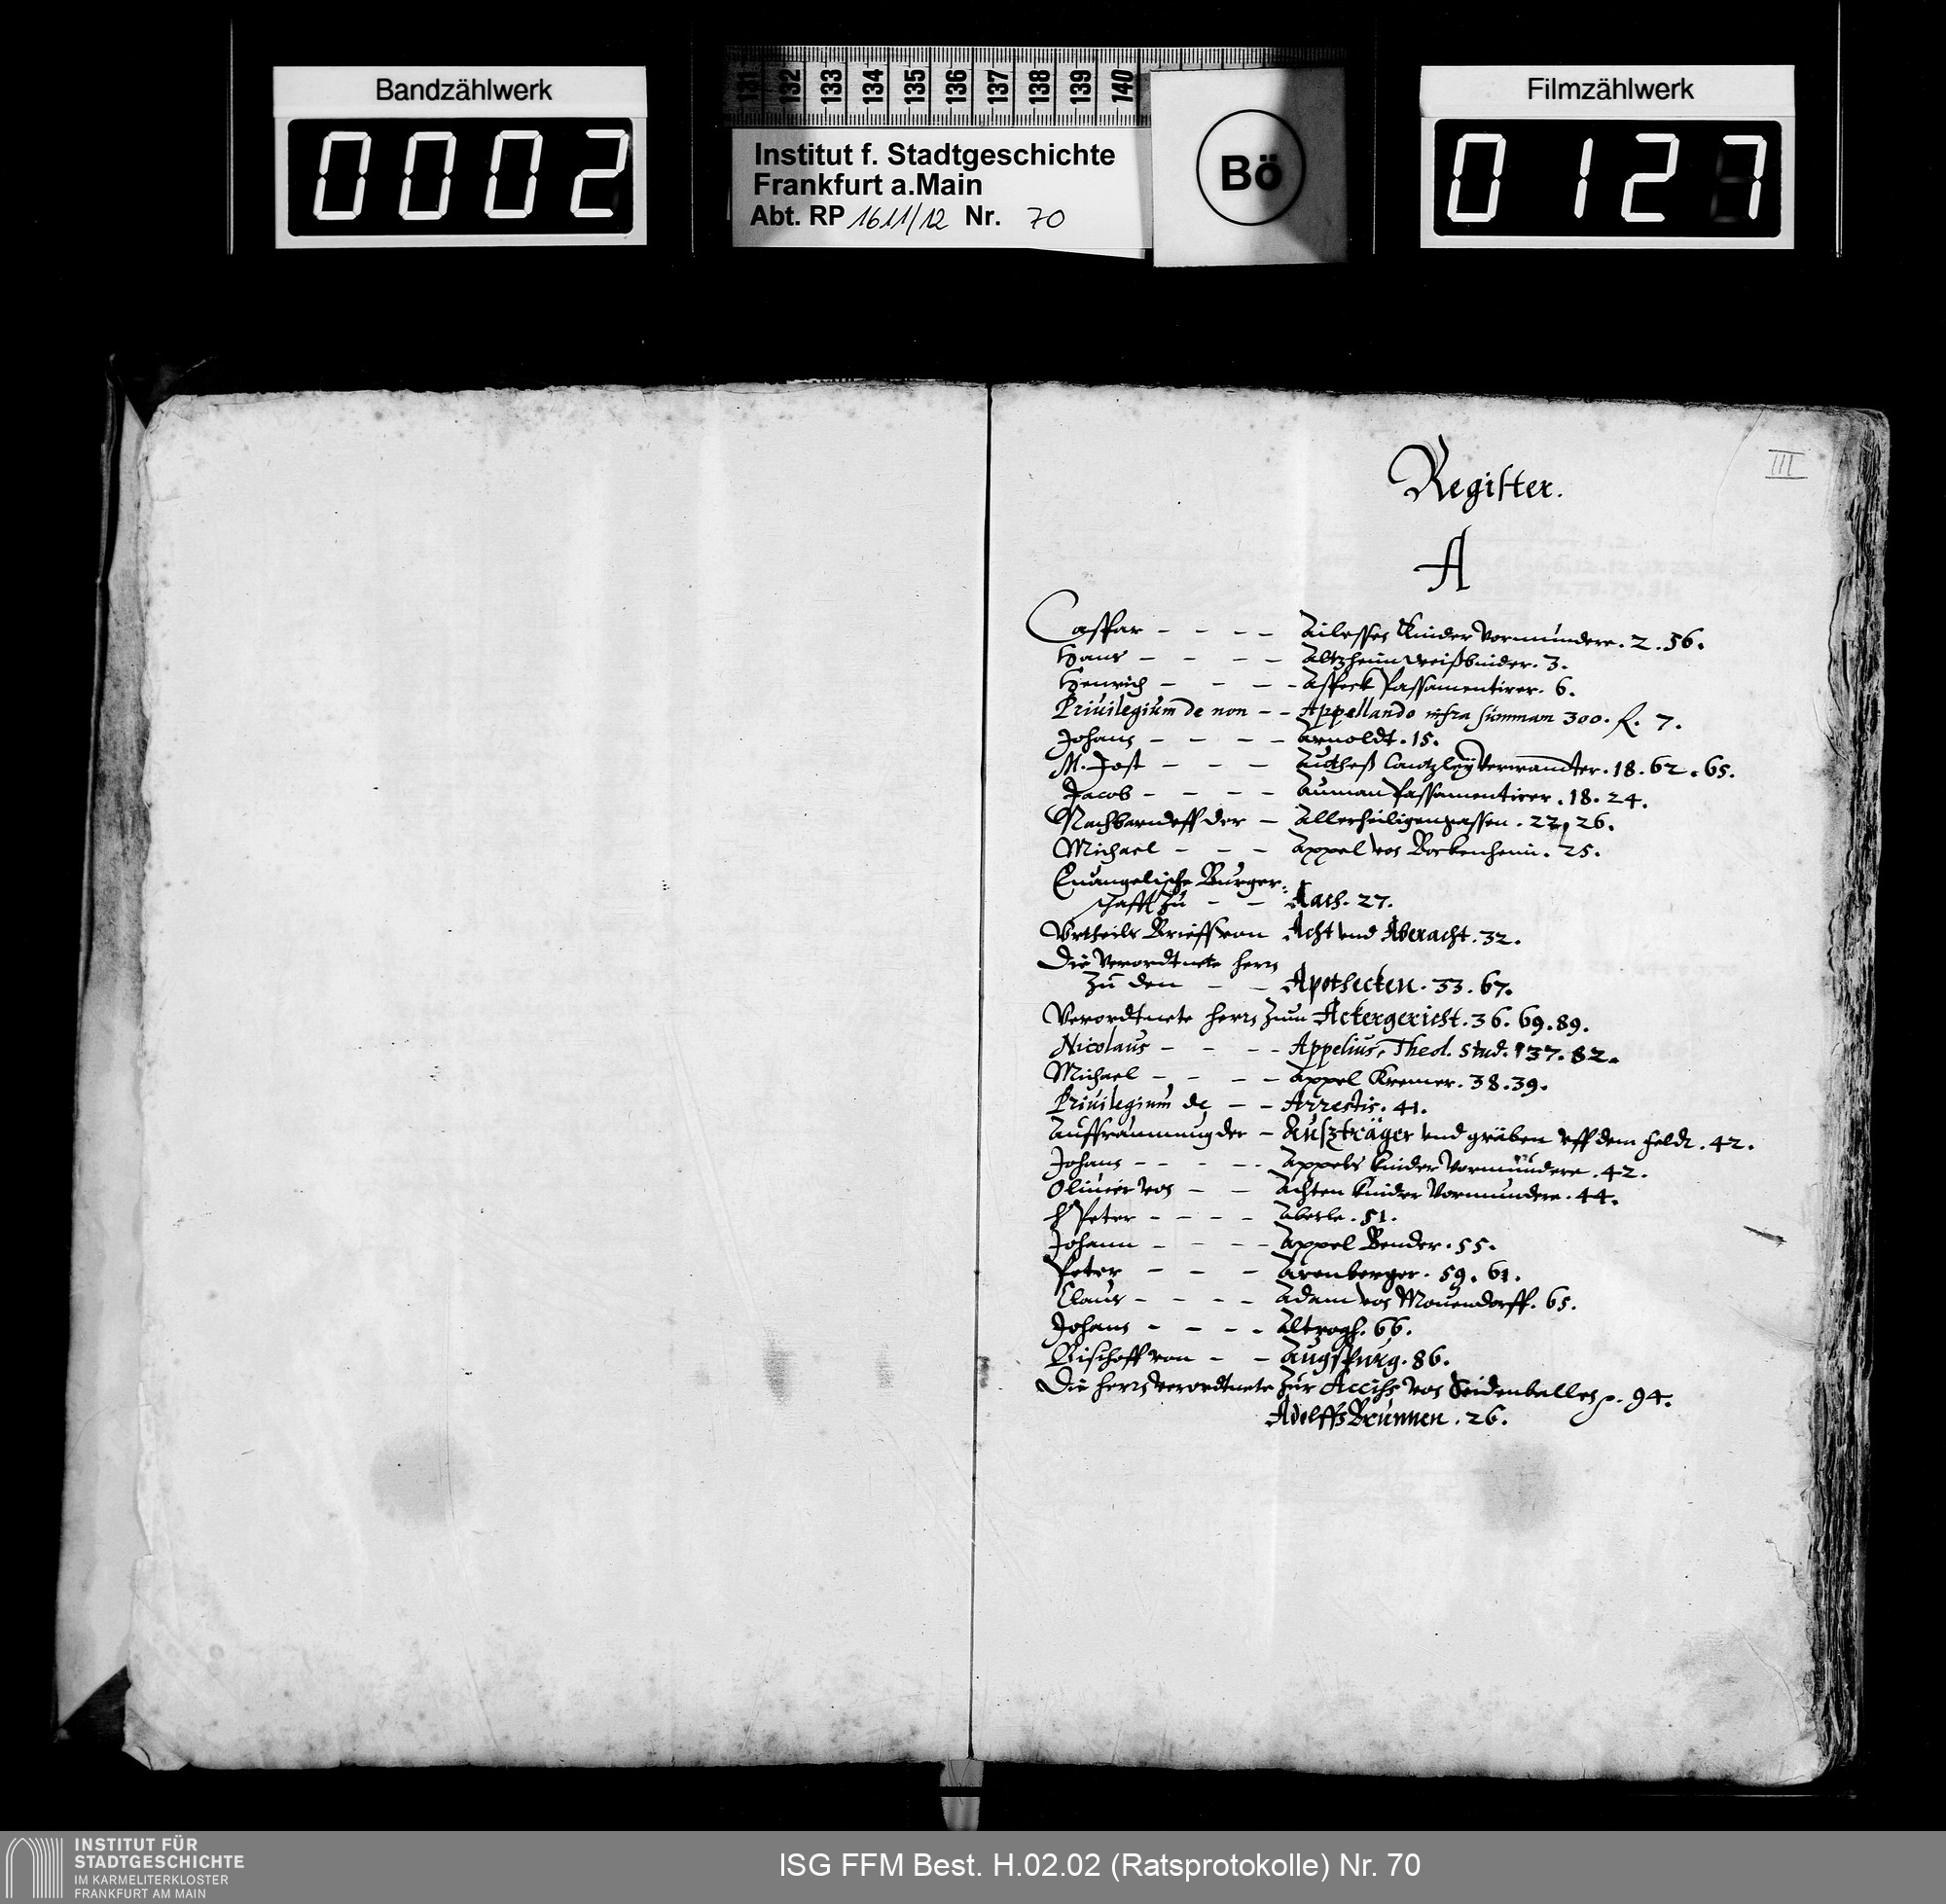 Bandzählwerk
0002
131 132 133 134 135 136 137 138 139 140
Institut f. Stadtgeschichte
Frankfurt a.Main
Abt. RP 1611/12 Nr. 70
Bö
Filmzählwerk
0127
III
Register.
A
Caspar - - - - Kinder Vormündere. 2. 56.
Hans - - - - Altzheim Weißbinder. 3.
Henrich - - - - Passamentirer. 6.
Priuilegium de non - - Appellando infra summam 300. fl. 7.
Johans - - - - Arnoldt. 15.
M. Jost - - - Authes Cantzley Verwandter. 18. 62. 65.
Jacob - - - - Auman Passamentirer. 18. 24.
Nachbarn der - Allerheiligengassen. 22. 26.
Michael - - - Appel von Bockenheim. 25.
Euangelische Burger-
schafft zu - - Aach. 27.
Vrtheils Brieff von Acht vnd Aberacht. 32.
Die Verordtnete Herrn
zu den - - Apothecken. 33. 67.
Verordtnete Herrn zum Ackergericht. 36. 69. 89.
Nicolaus - - - - Appelius, Theol. Stud. 37. 82.
Michael - - - - Appel Kremer. 38. 39.
Priuilegium de - - Arrestis. 41.
Auffraumung der - Außträger vnd gräben vff dem Feldt. 42.
Johans - - - - Appels Kinder Vormündere. 42.
Oliuier von - - Achten Kinder Vormundere. 44.
H Peter - - - - Aberle. 51.
Johann - - - - Appel Bender. 55.
Peter - - - Arenberger. 59. 61.
Claus - - - - Adam von 65.
Johans - - - - 66.
Bischoff von - - Augspurg. 86.
Die Herrn Verordtnete zur Acciss von Seidenballen. 94.
Adolffs Brunnen. 26.
INSTITUT FÜR
STADTGESCHICHTE
IM KARMELITERKLOSTER
FRANKFURT AM MAIN
ISG FFM Best. H.02.02 (Ratsprotokolle) Nr. 70